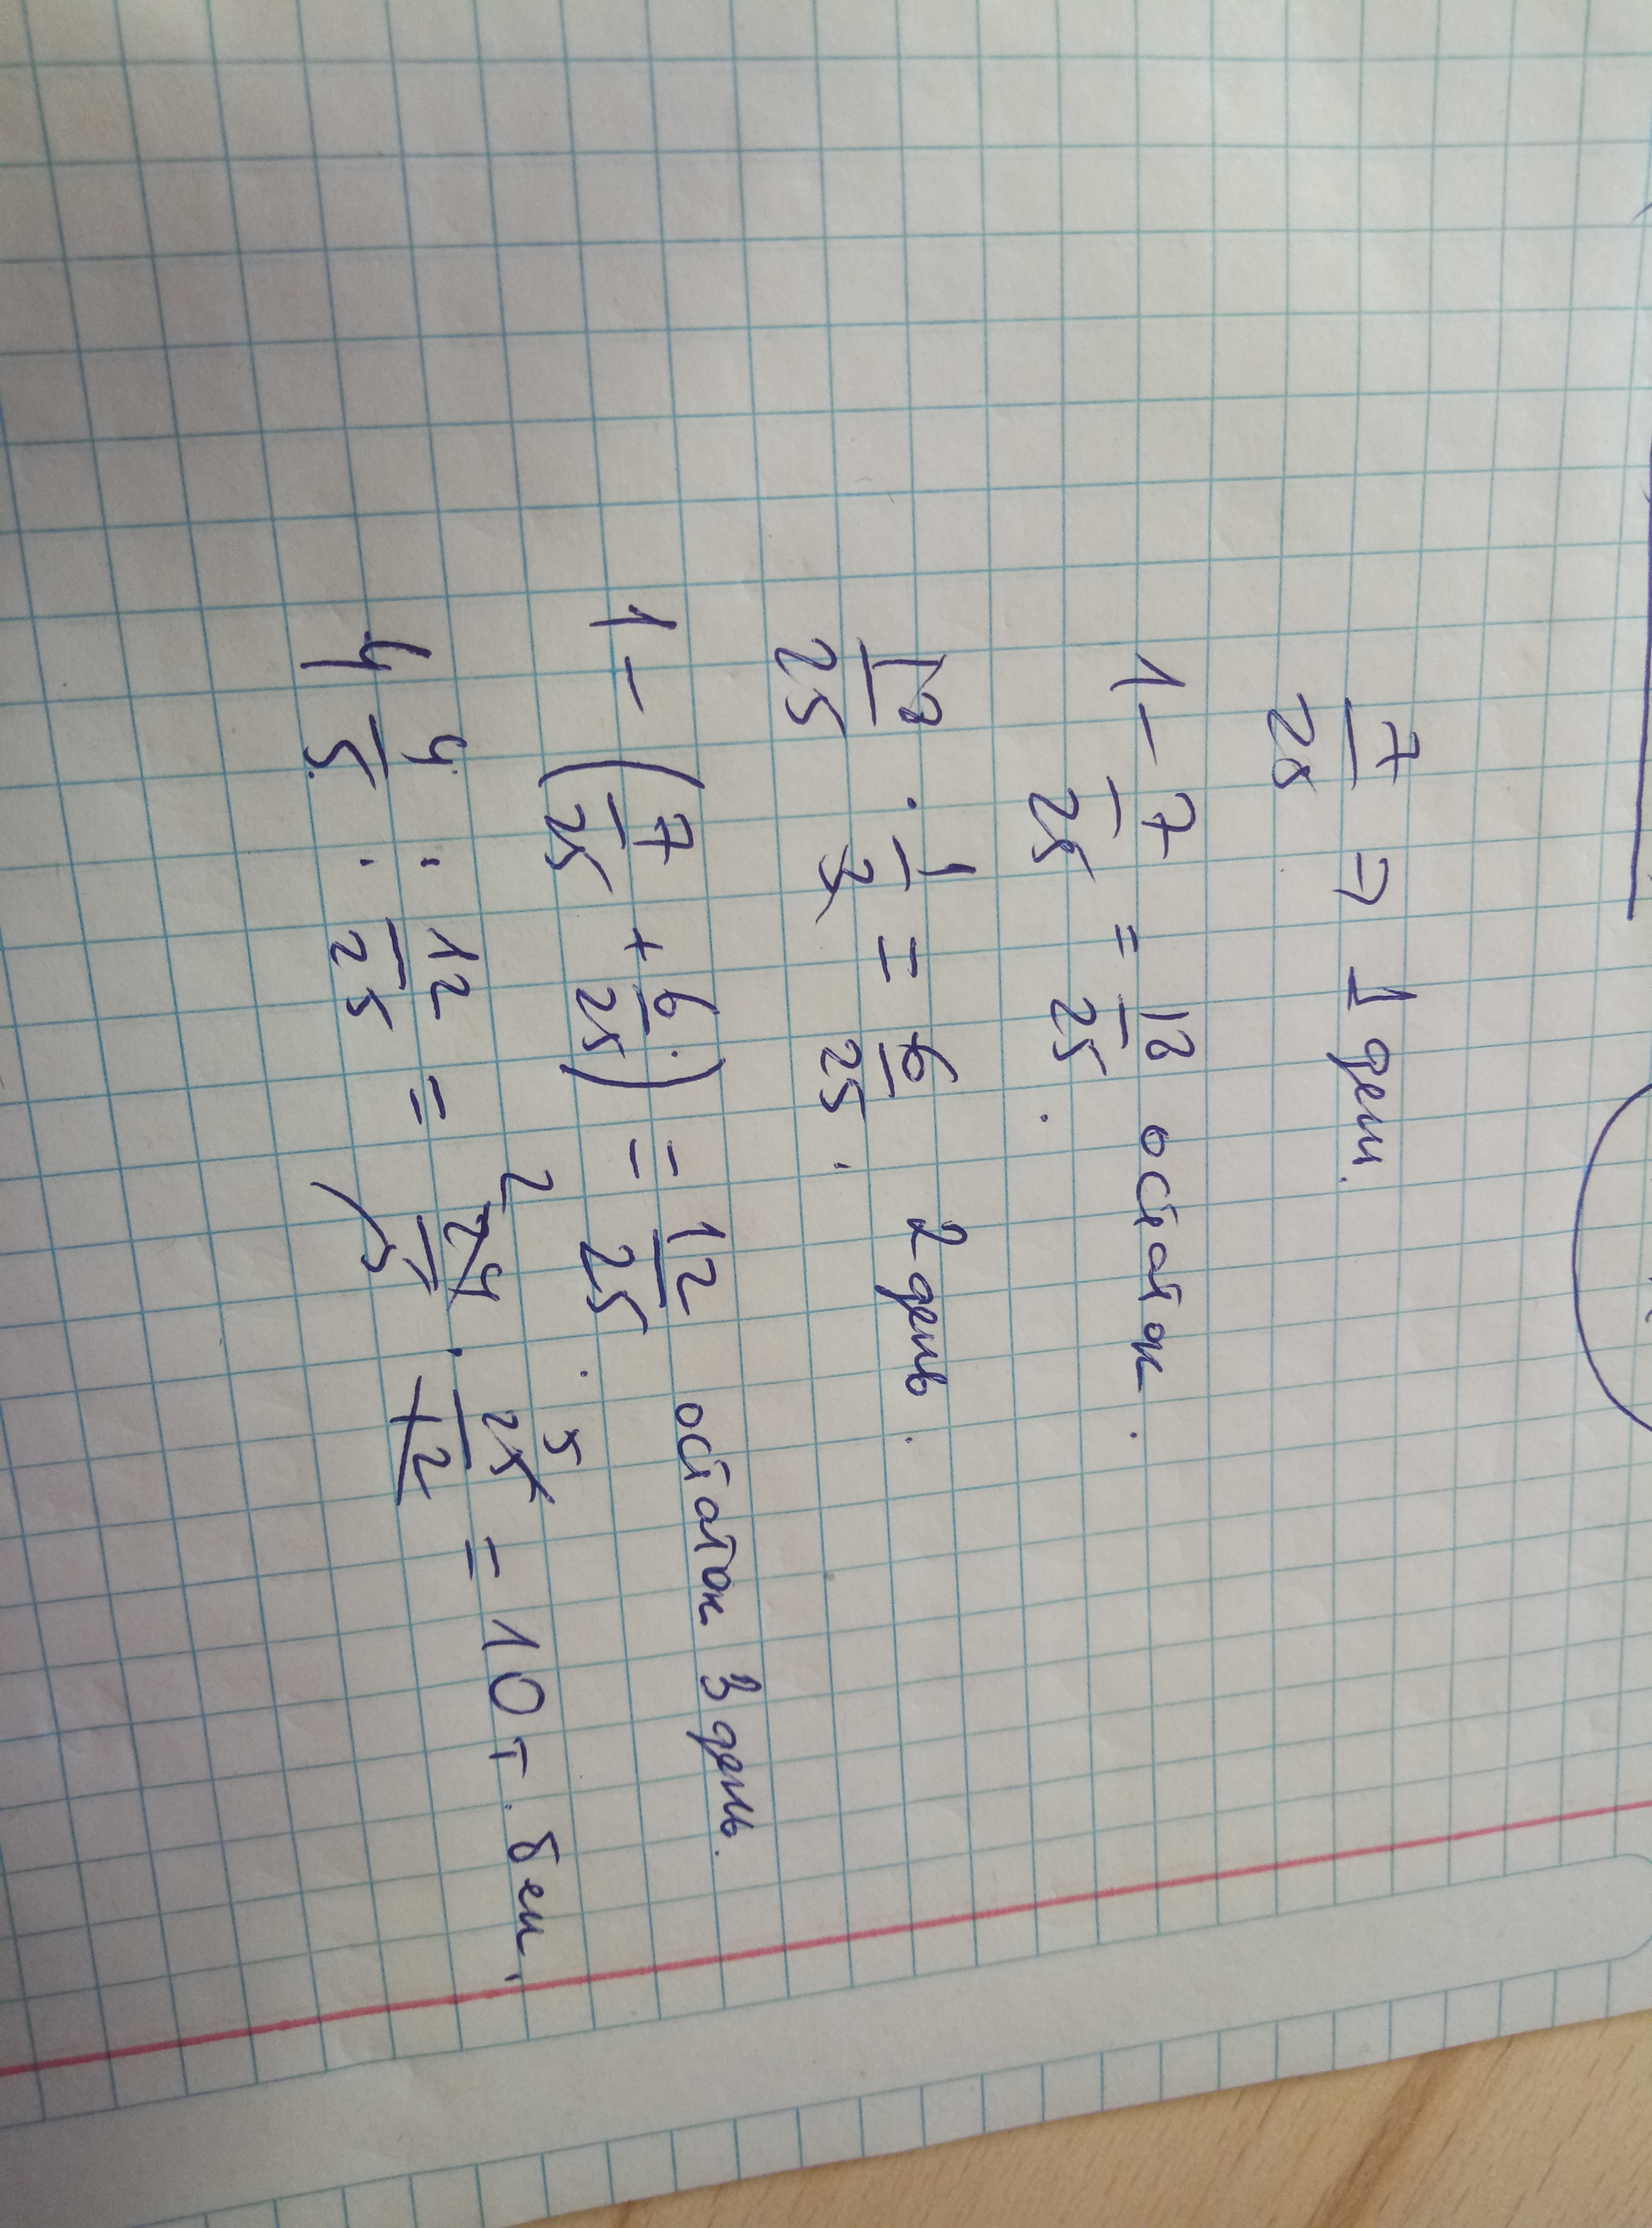 7/25 ⇒ 1 ден.
1 - 7/25 = 18/25 остаток.
18/25 · 1/3 = 6/25. 2 день.
1 - (7/25 + 6/25) = 12/25. остаток 3 день.
4 4/5 : 12/25 = 24/5 · 25/12 = 10 т. бен.